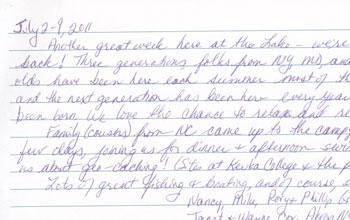 July 2-9, 2011
Another great week here at the Lake - we're
back! Three generations folks from NY, MD, and
olds have been here each summer most of th
and the next generation has been here every year
been born. We love the chance to relax and re
Family (cousins) from NC came up to the camp
few days, joining us for dinner & afternoon swim
us about geo-caching! (Sites at Keuka College & the p
Lots of great fishing & boating, and of course, s
Nancy, Mike, Rory & Phillip
Janet & Wayne Cox, Akron N